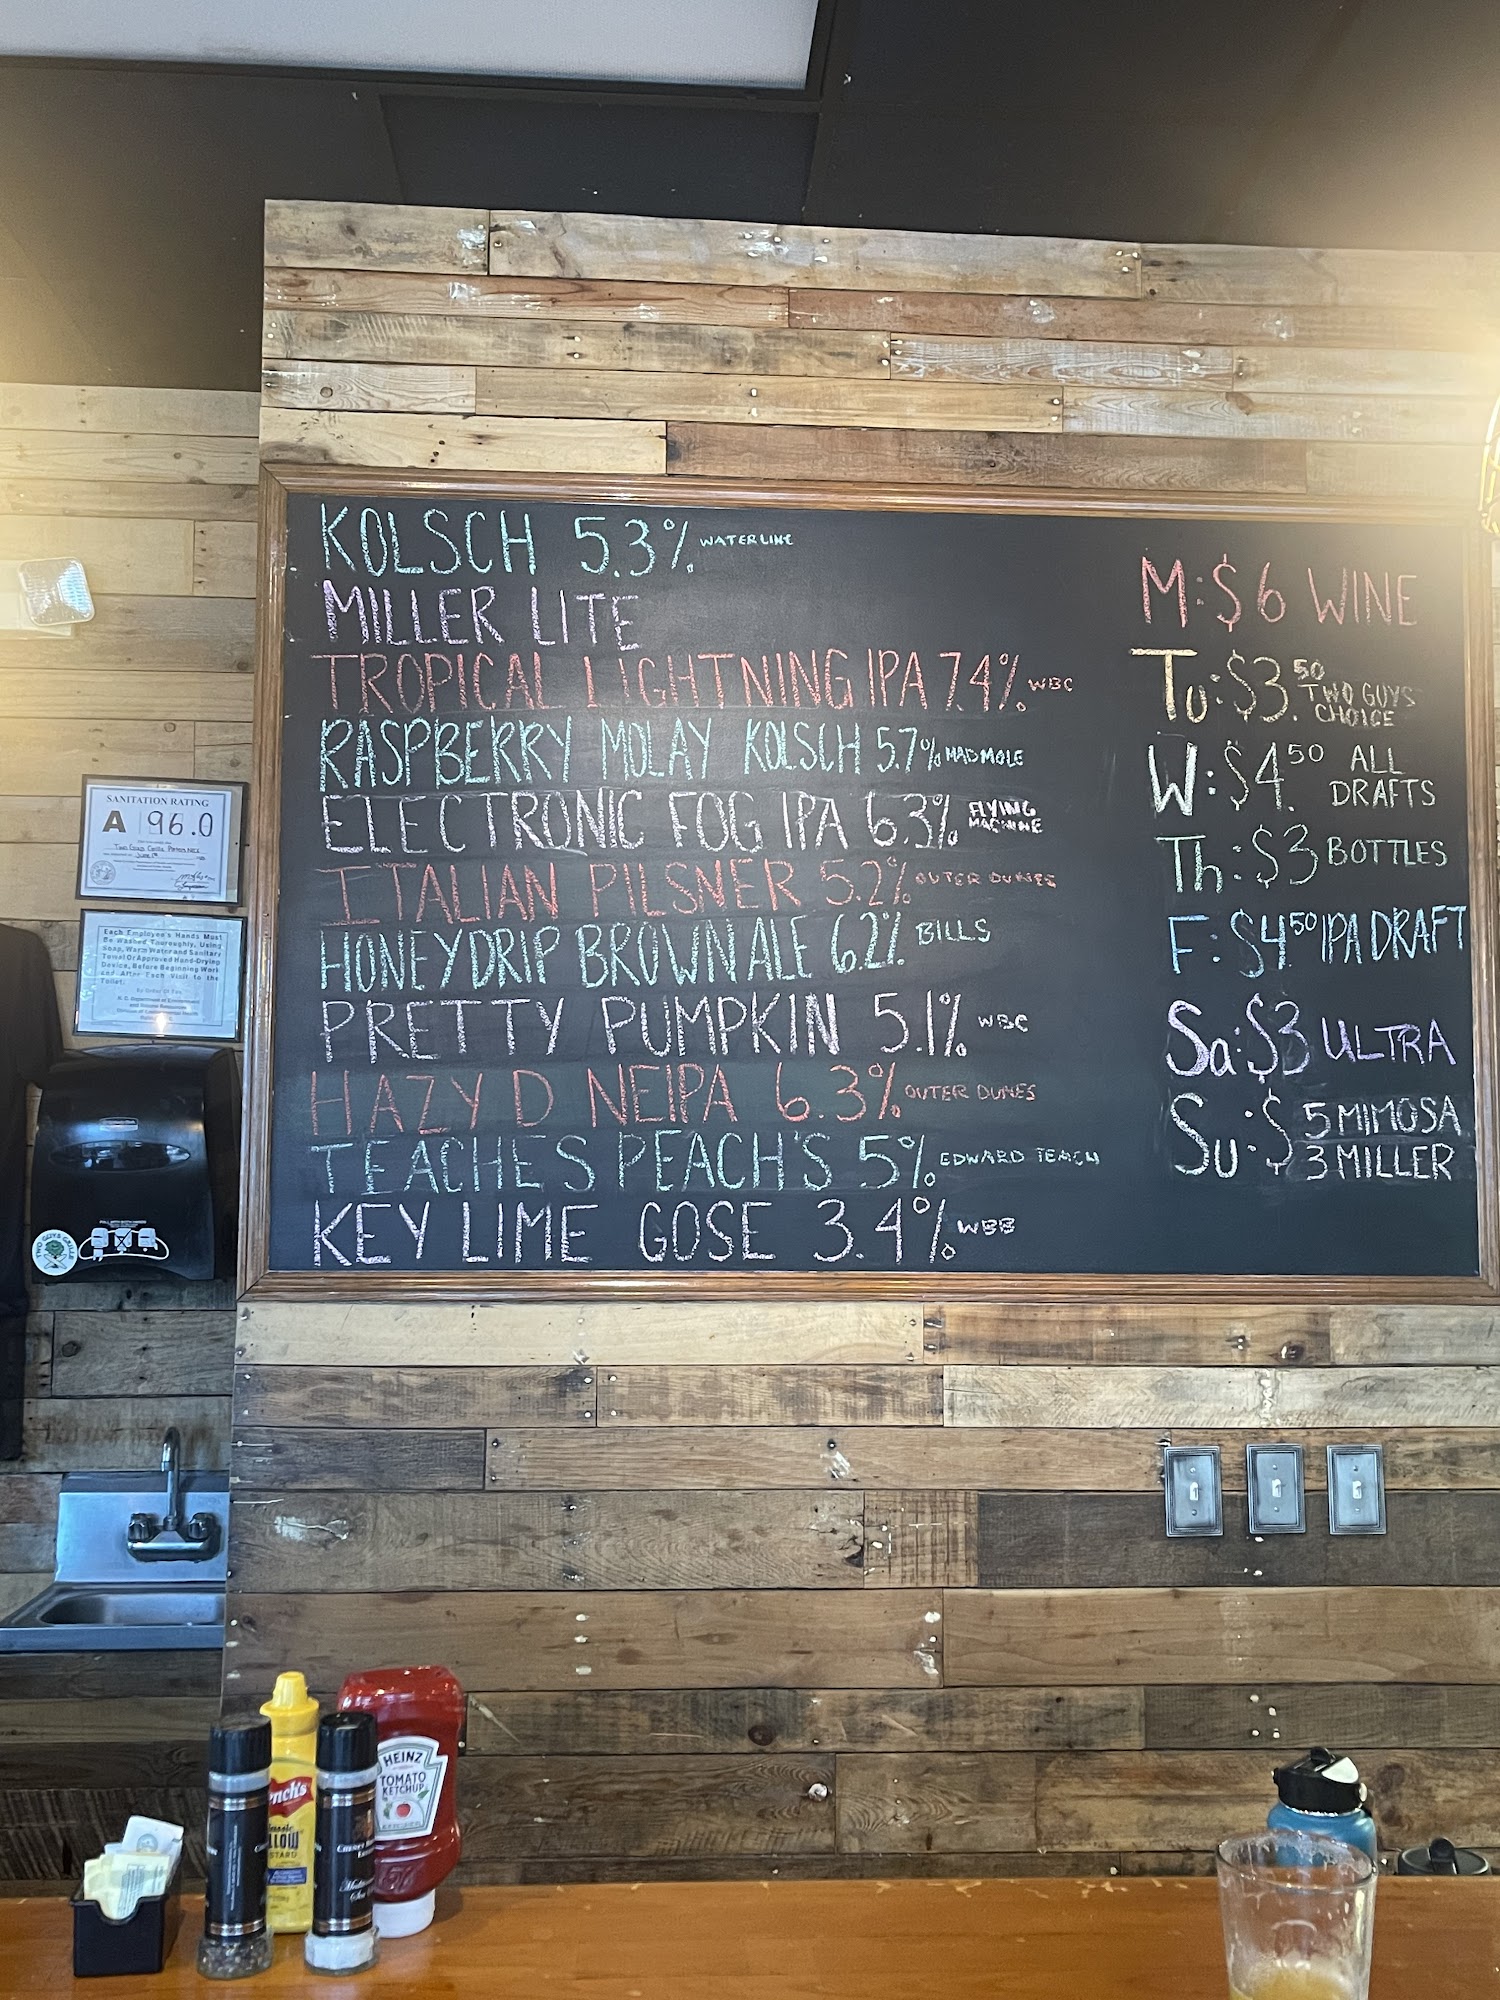 KOLSCH 5.3% WATERLINE
MILLER LITE
TROPICAL LIGHTNING IPA 7.4% WBC
RASPBERRY MOLAY KOLSCH 5.7% MAD MOLE
ELECTRONIC FOG IPA 6.3% FLYING
MACHINE
ITALIAN PILSNER 5.2% OUTER DUNES
HONEYDRIP BROWN ALE 6.2% BILLS
PRETTY PUMPKIN 5.1% WBC
HAZY D NEIPA 6.3% OUTER DUNES
TEACHES PEACH'S 5% EDWARD TEACH
KEY LIME GOSE 3.4% WBB
M: $6 WINE
Tu: $3.50 TWO GUYS
CHOICE
W: $4.50 ALL
DRAFTS
Th: $3 BOTTLES
F: $4.50 IPA DRAFT
Sa: $3 ULTRA
Su: $ 5 MIMOSA
3 MILLER
SANITATION RATING
A 96.0
Each Employee's Hands Must
Be Washed Thouroughly, Using
Soap, Warm Water and Sanitary
Towel Or Approved Hand-Drying
Device, Before Beginning Work
and After Each Visit to the
Toilet.
TWO GUYS GRILLE
HEINZ
TOMATO
KETCHUP